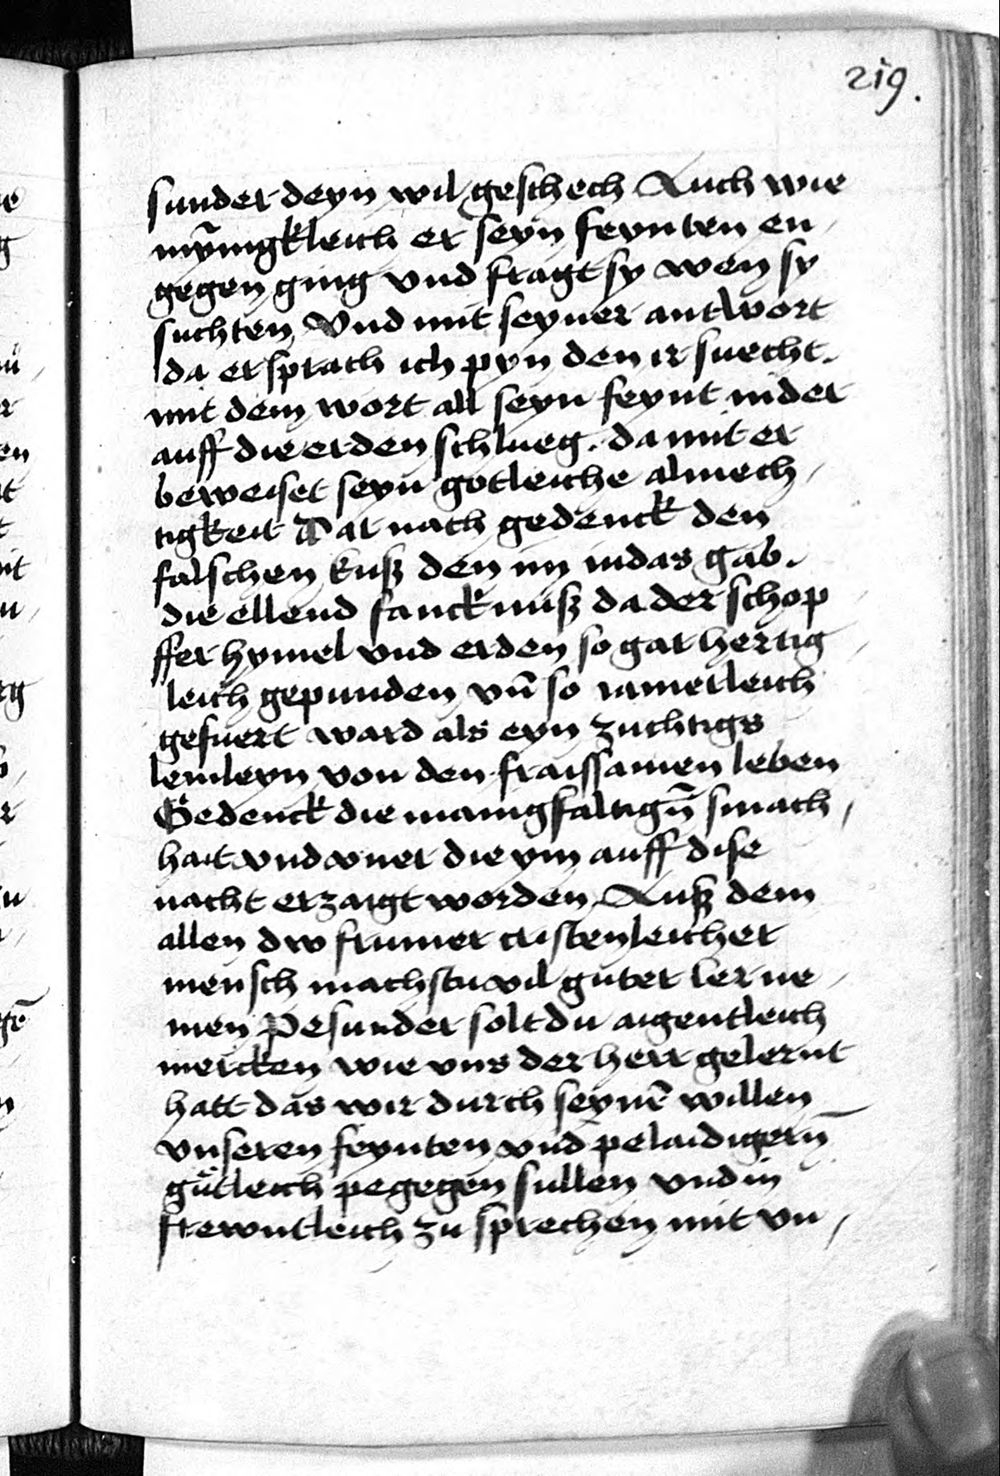 219.
sunder deyn wil geschech Auch wie
mȳnigkleich er seyn feynten en
gegen ging vnd fragt sy wen sy
suchten, Vnd mit seyner antwort
da er sprach ich pyn den ir suecht.
mit dem wort all seyn feynt nider
auff die erden schlueg. da mit er
beweiset seyn gotleiche almech,
tigkeit Dar nach gedenck den
falschen kuß den im iudas gab.
die ellend fancknuß da der schop
ffer hymel vnd erden so gar hertig
leich gepunden vn̄ so iamerleich
gefuert ward als eyn zuchtigs
lemleyn von den fraissamen leben
Gedenck die manigfaltign̄ smach,
hait vnd vner die ym auff dise
nacht erzaigt worden. Auß dem
allen dw frumer cristenleicher
mensch machstu vil guter ler ne
men Pesunder solt du aigentleich
mercken wie vns der herr gelernt
hatt das wir durch seynē willen
vnseren feynten vnd pelaidigern̄
gůtleich pegegen sullen vnd in
frewntleich zu sprechen mit vn,